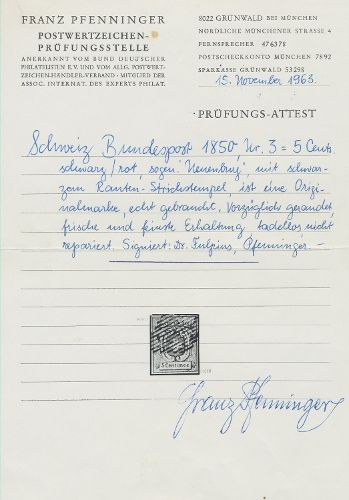 FRANZ PFENNINGER
POSTWERTZEICHEN-
PRÜFUNGSSTELLE
ANERKANNT VOM BUND DEUTSCHER
PHILATELISTEN E.V. UND VOM ALLG. POSTWERT-
ZEICHEN-HÄNDLER-VERBAND · MITGLIED DER
ASSOC. INTERNAT. DES EXPERTS PHILAT.
8022 GRÜNWALD BEI MÜNCHEN
NÖRDLICHE MÜNCHENER STRASSE 4
FERNSPRECHER 476378
POSTSCHECKKONTO MÜNCHEN 7892
SPARKASSE GRÜNWALD 53298
15. November 1963.
PRÜFUNGS-ATTEST
Schweiz Bundespost 1850 Nr. 3 = 5 Cents
schwarz/rot, sogen. "Neuenburg", mit schwar-
zem Rauten-Strichstempel, ist eine Origi-
nalmarke, echt gebraucht. Vorzüglich gerandet,
frische und feinste Erhaltung, tadellos, nicht
repariert. Signiert: Dr. Fulpius, Pfenninger. -
5 Centimes
Franz Pfenninger